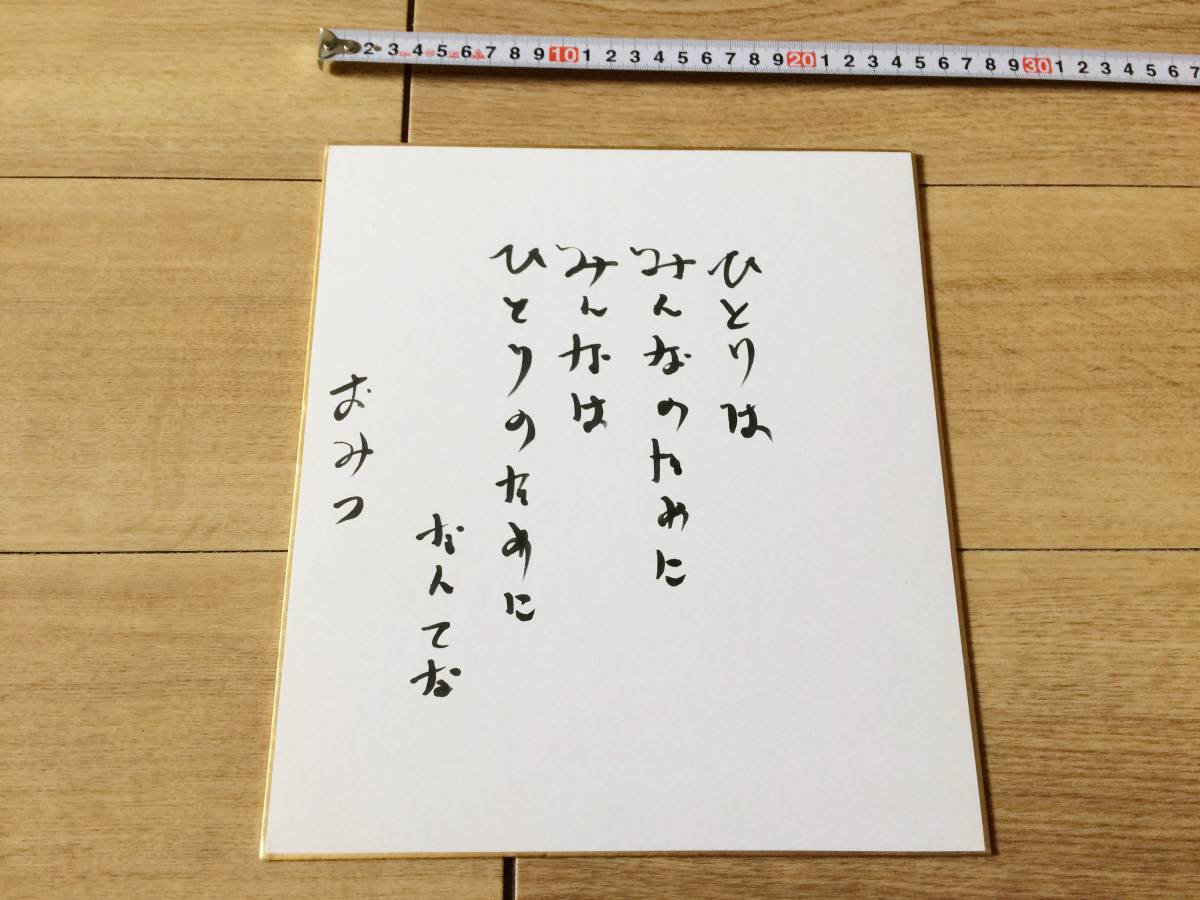 2 3 4 5 6 7 8 9 10 1 2 3 4 5 6 7 8 9 20 1 2 3 4 5 6 7 8 9 30 1 2 3 4 5 6 7
ひとりは
みんなのために
みんなは
ひとりのために
なんてな
おみつ